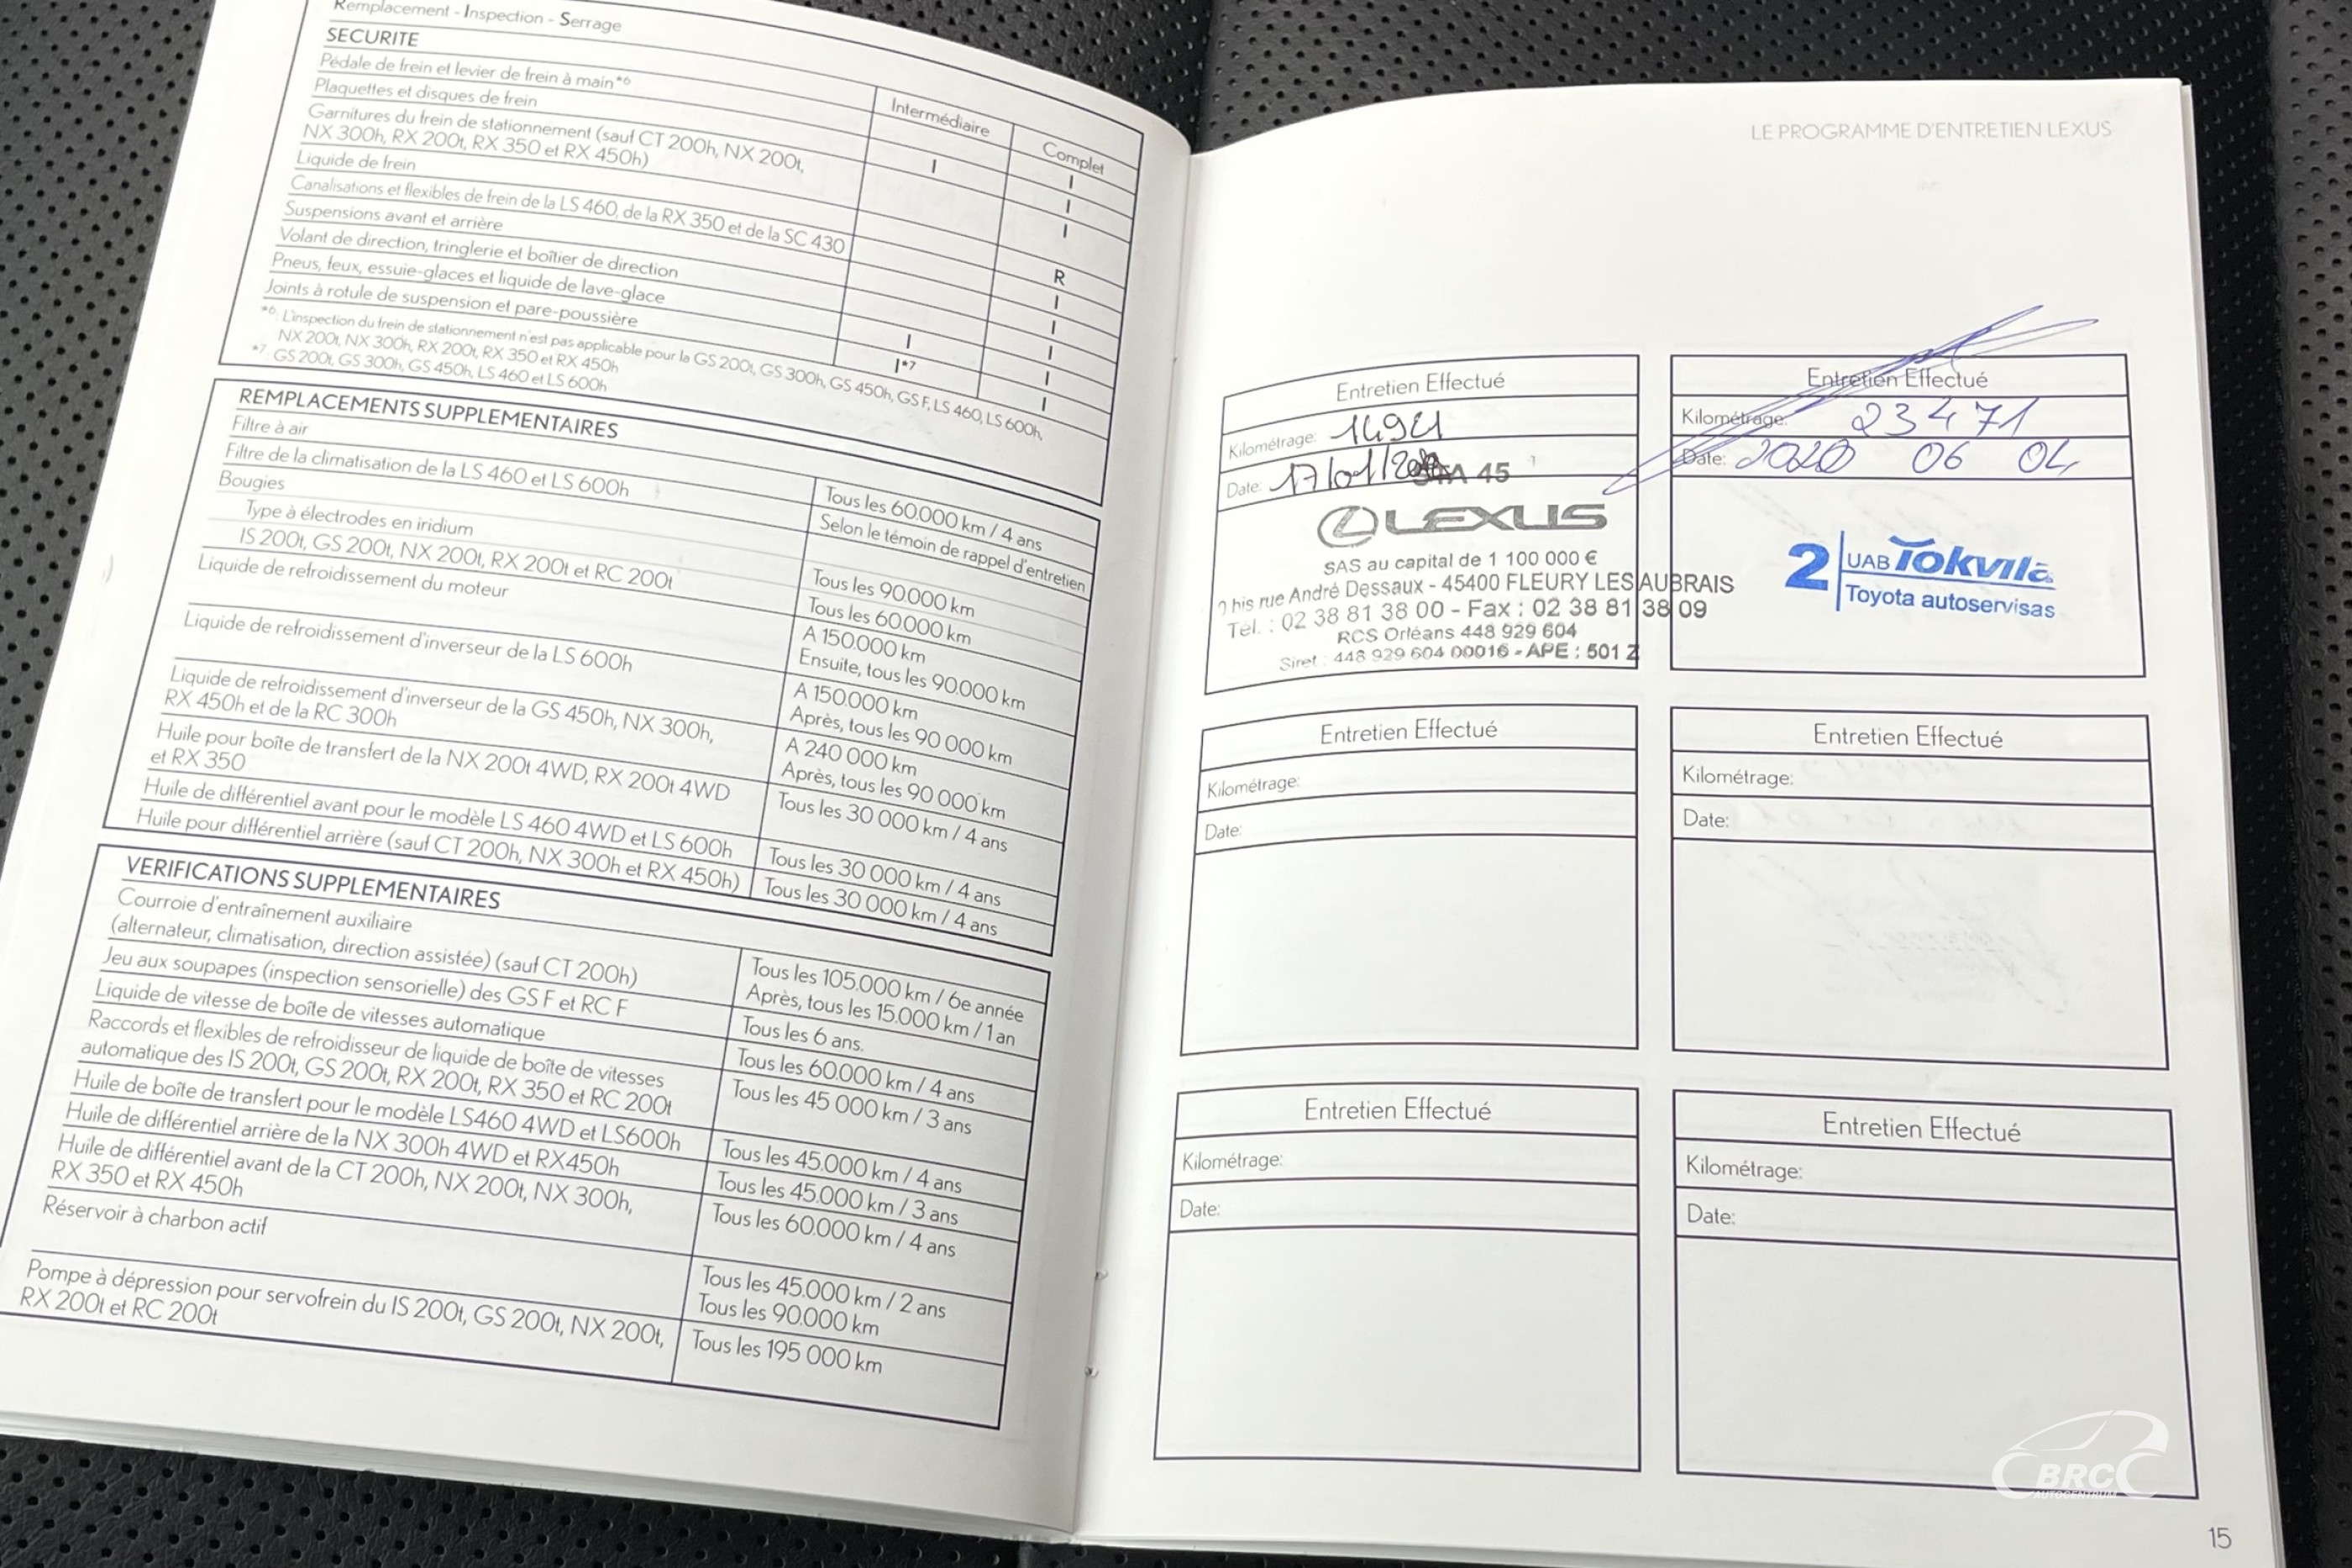 Remplacement - Inspection - Serrage
SECURITE
Intermédiaire
Complet
Pédale de frein et levier de frein à main*6
I
Plaquettes et disques de frein
I
I
Garnitures du frein de stationnement (sauf CT 200h, NX 200t,
NX 300h, RX 200t, RX 350 et RX 450h)
I
Liquide de frein
R
Canalisations et flexibles de frein de la LS 460, de la RX 350 et de la SC 430
I
Suspensions avant et arrière
I
Volant de direction, tringlerie et boîtier de direction
I
Pneus, feux, essuie-glaces et liquide de lave-glace
I
I
Joints à rotule de suspension et pare-poussière
I*7
I
*6: L'inspection du frein de stationnement n'est pas applicable pour la GS 200t, GS 300h, GS 450h, GS F, LS 460, LS 600h,
NX 200t, NX 300h, RX 200t, RX 350 et RX 450h
*7: GS 200t, GS 300h, GS 450h, LS 460 et LS 600h
REMPLACEMENTS SUPPLEMENTAIRES
Filtre à air
Tous les 60.000 km / 4 ans
Filtre de la climatisation de la LS 460 et LS 600h
Selon le témoin de rappel d'entretien
Bougies
Type à électrodes en iridium
Tous les 90.000 km
IS 200t, GS 200t, NX 200t, RX 200t et RC 200t
Tous les 60.000 km
Liquide de refroidissement du moteur
A 150.000 km
Ensuite, tous les 90.000 km
Liquide de refroidissement d'inverseur de la LS 600h
A 150.000 km
Après, tous les 90 000 km
Liquide de refroidissement d'inverseur de la GS 450h, NX 300h,
RX 450h et de la RC 300h
A 240 000 km
Après, tous les 90 000 km
Huile pour boîte de transfert de la NX 200t 4WD, RX 200t 4WD
et RX 350
Tous les 30 000 km / 4 ans
Huile de différentiel avant pour le modèle LS 460 4WD et LS 600h
Tous les 30 000 km / 4 ans
Huile pour différentiel arrière (sauf CT 200h, NX 300h et RX 450h)
Tous les 30 000 km / 4 ans
VERIFICATIONS SUPPLEMENTAIRES
Courroie d'entraînement auxiliaire
(alternateur, climatisation, direction assistée) (sauf CT 200h)
Tous les 105.000 km / 6e année
Après, tous les 15.000 km / 1 an
Jeu aux soupapes (inspection sensorielle) des GS F et RC F
Tous les 6 ans.
Liquide de vitesse de boîte de vitesses automatique
Tous les 60.000 km / 4 ans
Raccords et flexibles de refroidisseur de liquide de boîte de vitesses
automatique des IS 200t, GS 200t, RX 200t, RX 350 et RC 200t
Tous les 45 000 km / 3 ans
Huile de boîte de transfert pour le modèle LS460 4WD et LS600h
Tous les 45.000 km / 4 ans
Huile de différentiel arrière de la NX 300h 4WD et RX450h
Tous les 45.000 km / 3 ans
Huile de différentiel avant de la CT 200h, NX 200t, NX 300h,
RX 350 et RX 450h
Tous les 60.000 km / 4 ans
Réservoir à charbon actif
Tous les 45.000 km / 2 ans
Tous les 90.000 km
Pompe à dépression pour servofrein du IS 200t, GS 200t, NX 200t,
RX 200t et RC 200t
Tous les 195 000 km
LE PROGRAMME D'ENTRETIEN LEXUS
Entretien Effectué
Kilométrage:
Date: 17/01/
45
LEXUS
SAS au capital de 1 100 000 €
bis rue André Dessaux - 45400 FLEURY LES AUBRAIS
Tél. : 02 38 81 38 00 - Fax : 02 38 81 38 09
RCS Orléans 448 929 604
Siret : 448 929 604 00016 - APE : 501 Z
Entretien Effectué
Kilométrage: 23471
Date: 2020 06 04
2 UAB Tokvila
Toyota autoservisas
Entretien Effectué
Kilométrage:
Date:
Entretien Effectué
Kilométrage:
Date:
Entretien Effectué
Kilométrage:
Date:
Entretien Effectué
Kilométrage:
Date:
BRC
AUTOCENTRUM
15